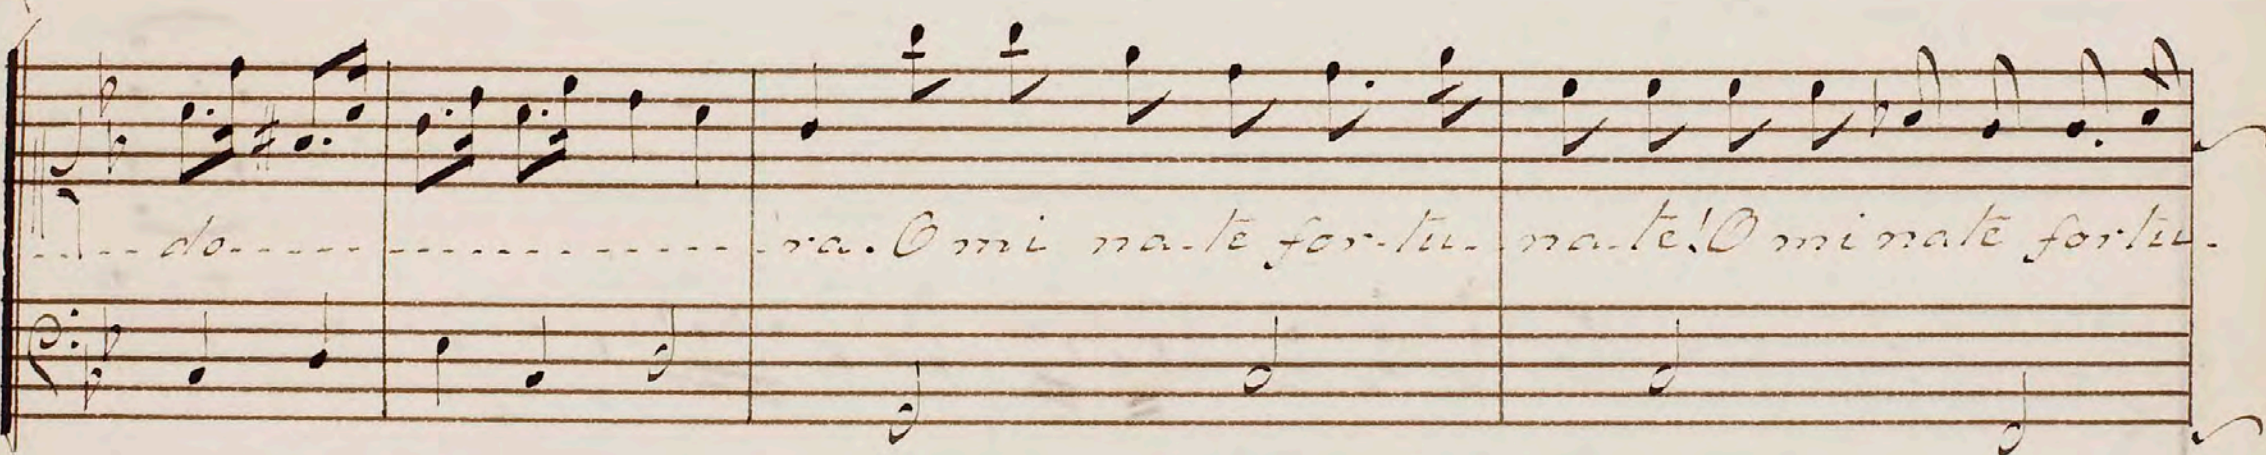 do ra. O mi na-te for-tu-na-te! O mi nate fortu-